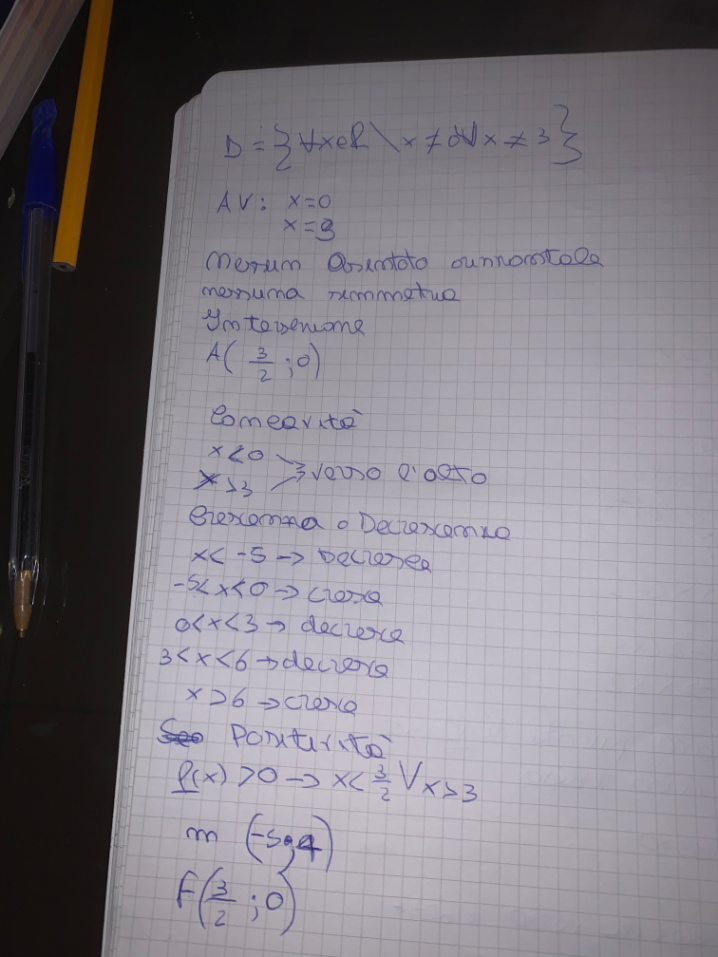 D = } ∀x∈R \ x ≠ 0 V x ≠ 3 }
AV: x=0
x=3
Nessun Asintoto orizzontale
nessuna simmetria
Intersezione
A( 3/2 ; 0)
Concavità
x<0
x>3 → verso l'alto
Crescenza o Decrescenza
x< -5 → Decresce
-5<x<0 → cresce
0<x<3 → decresce
3<x<6 → decresce
x>6 → cresce
Positività
f(x) >0 → x< 3/2 V x>3
m (-5;4)
F( 3/2 ; 0)